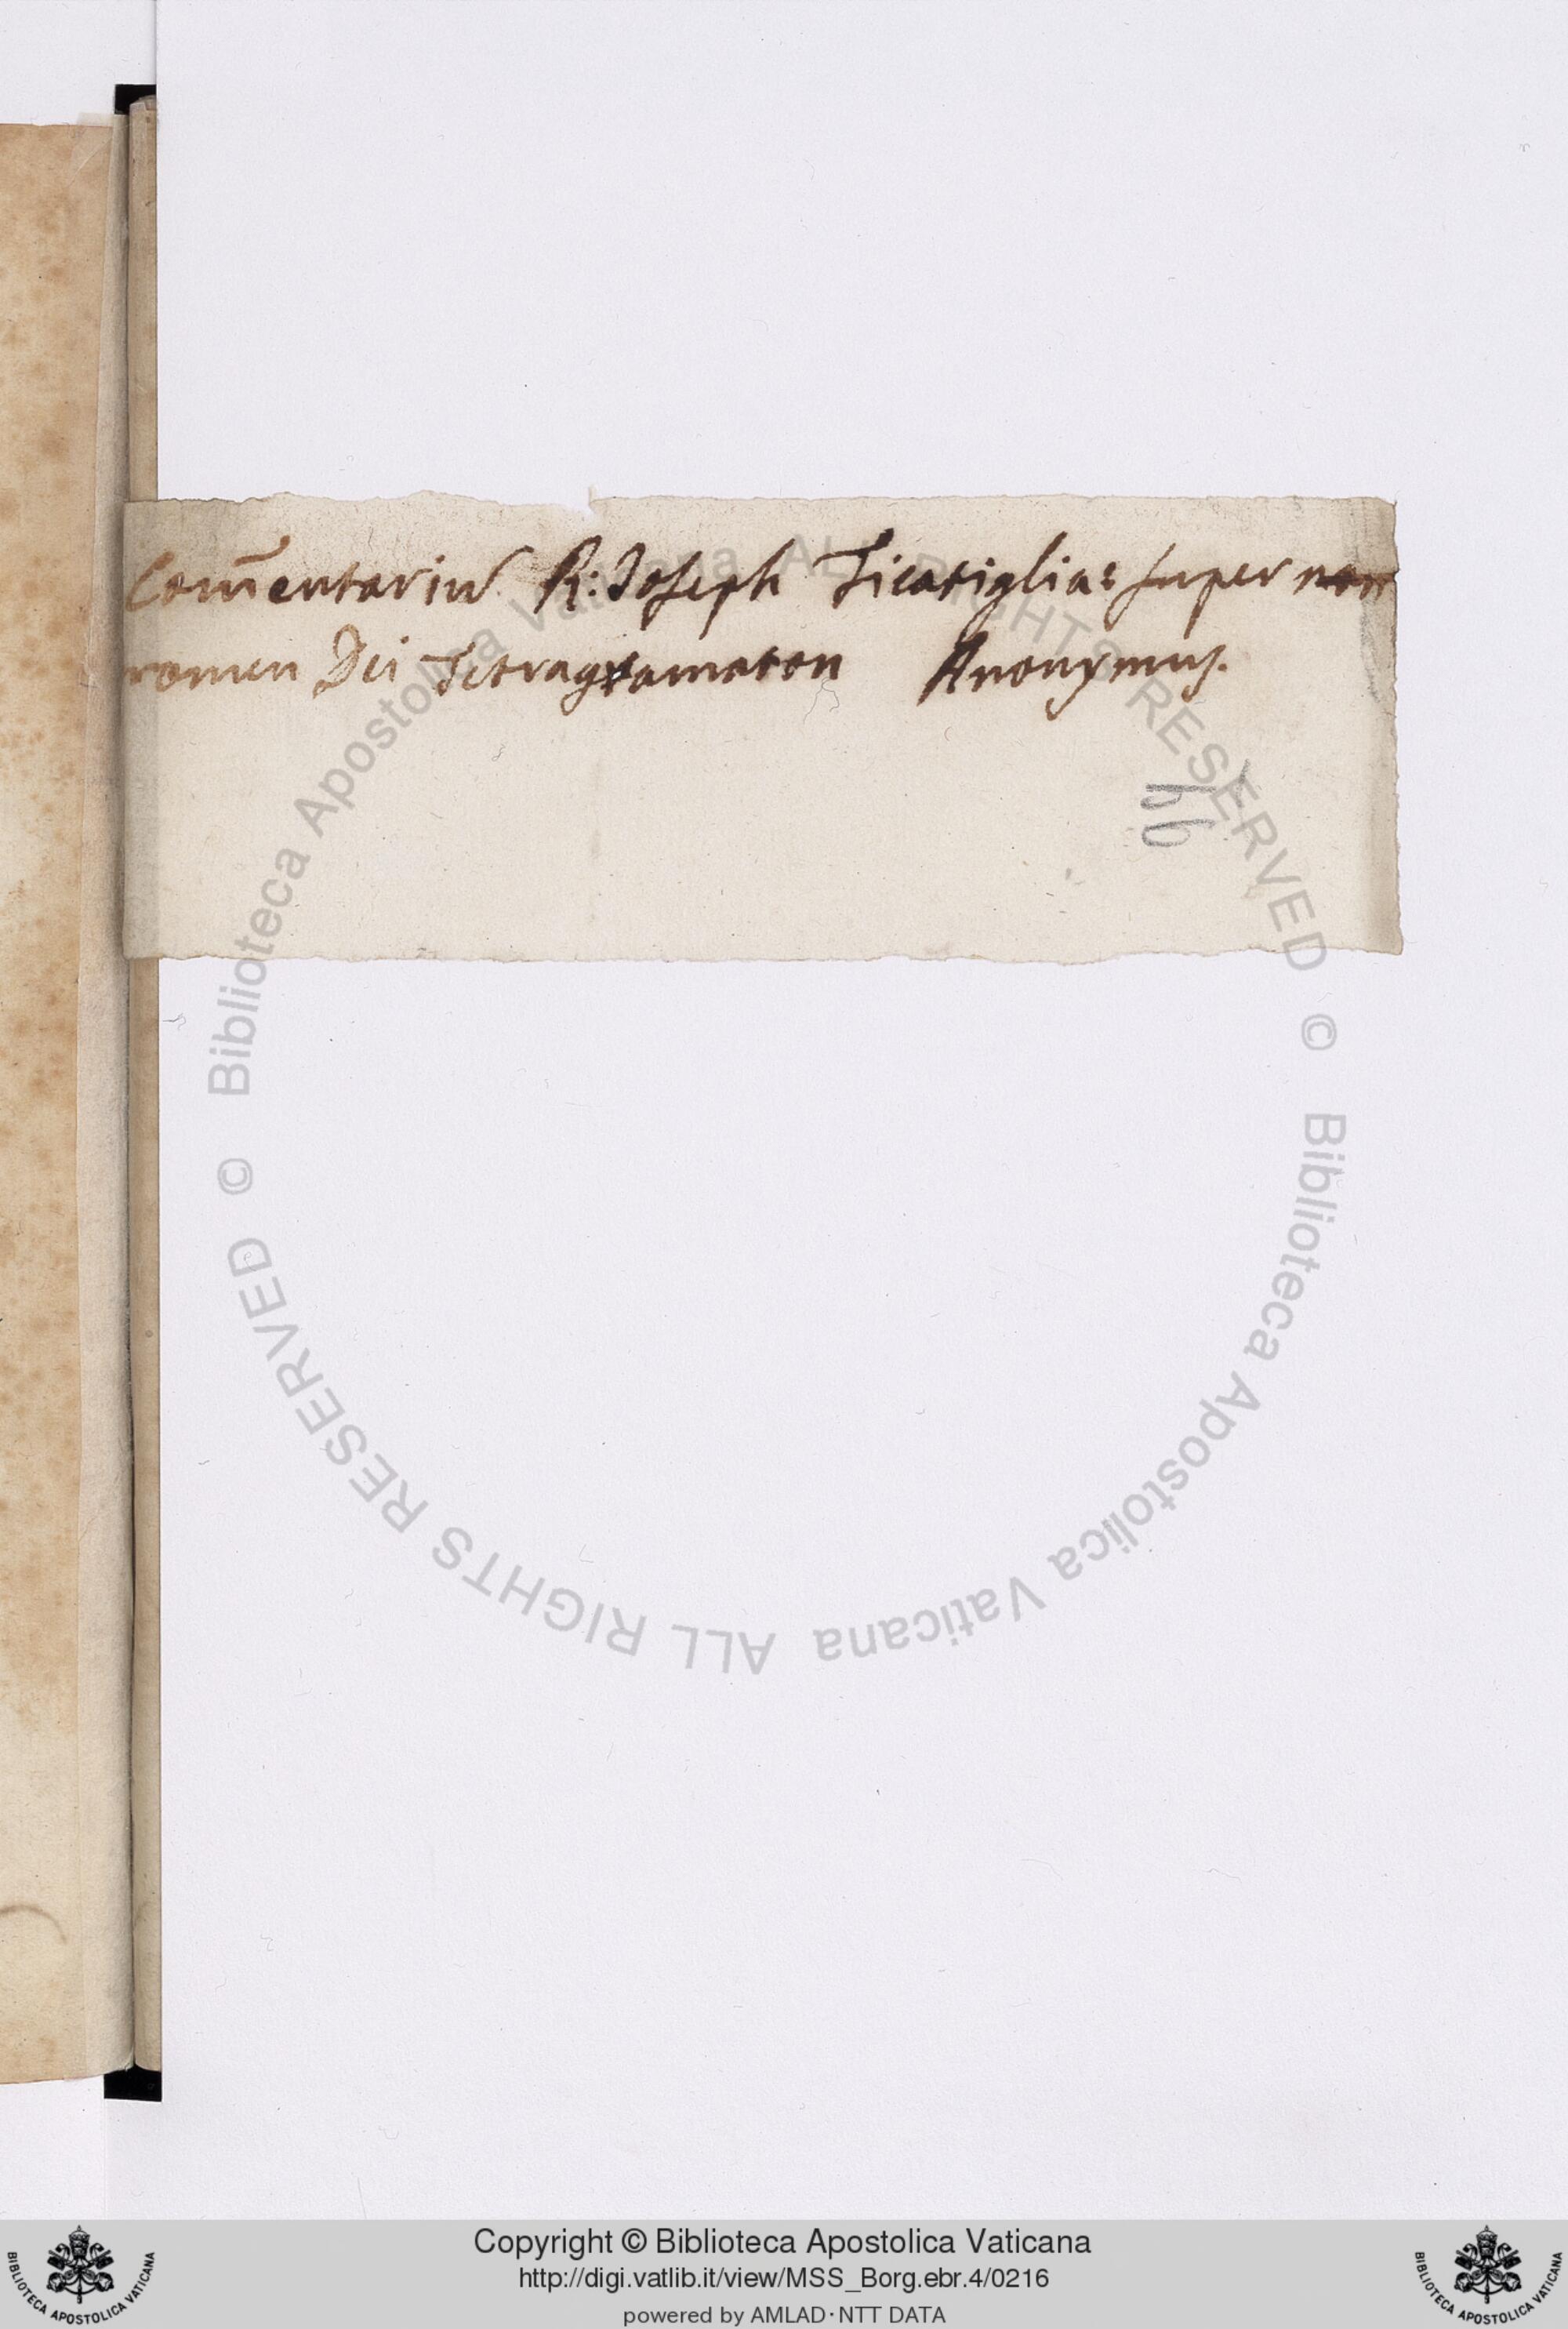 Com̃entariu R: Joseph Ticatiglia: super nom
nomen Dei Tetragramaton Anonymus.
56
© Biblioteca Apostolica Vaticana ALL RIGHTS RESERVED © Biblioteca Apostolica Vaticana ALL RIGHTS RESERVED
Copyright © Biblioteca Apostolica Vaticana
http://digi.vatlib.it/view/MSS_Borg.ebr.4/0216
powered by AMLAD·NTT DATA
BIBLIOTECA APOSTOLICA VATICANA
BIBLIOTECA APOSTOLICA VATICANA